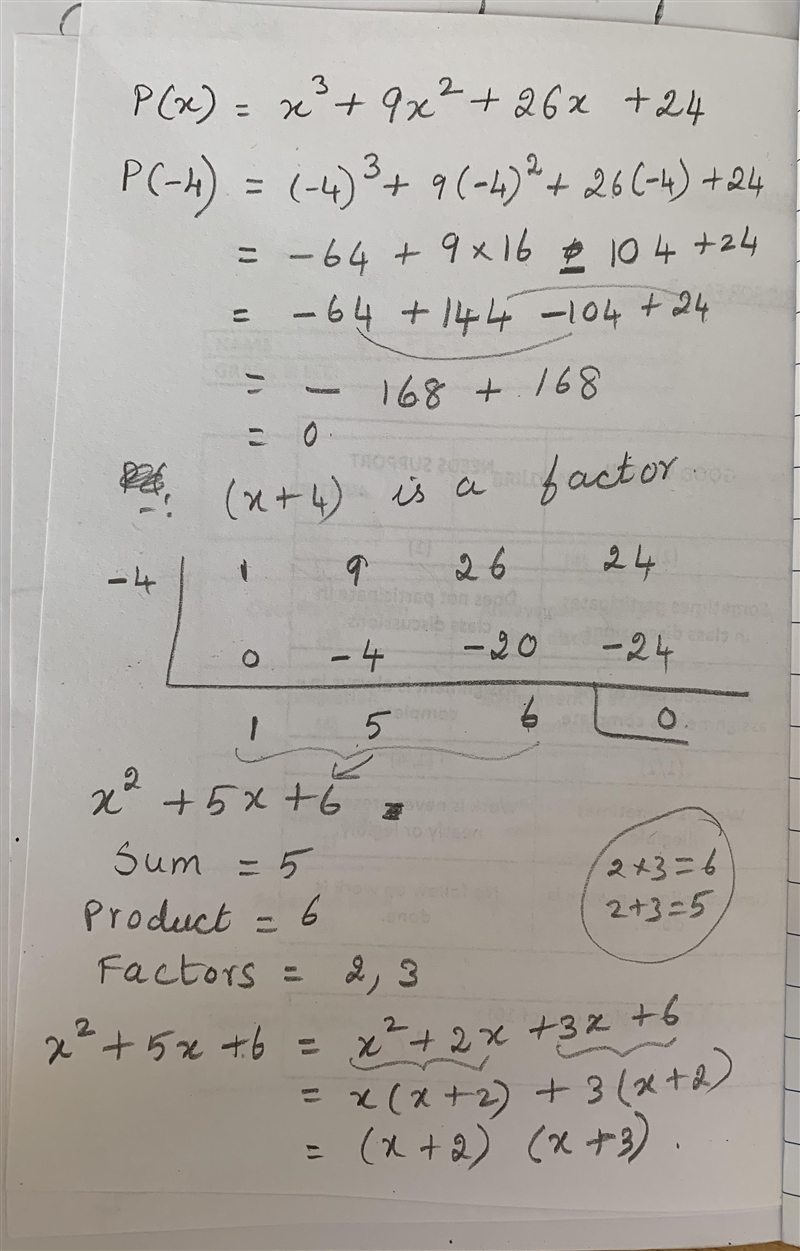 P(x) = x³ + 9x² + 26x + 24
P(-4) = (-4)³ + 9(-4)² + 26(-4) + 24
= -64 + 9×16 - 104 + 24
= -64 + 144 - 104 + 24
= - 168 + 168
= 0.
(x+4) is a factor.
-4 | 1 9 26 24
0 -4 -20 -24
1 5 6 | 0
x² + 5x + 6
Sum = 5
2×3=6
2+3=5
Product = 6
Factors = 2, 3
x² + 5x + 6 = x² + 2x + 3x + 6
= x(x+2) + 3(x+2)
= (x+2) (x+3).